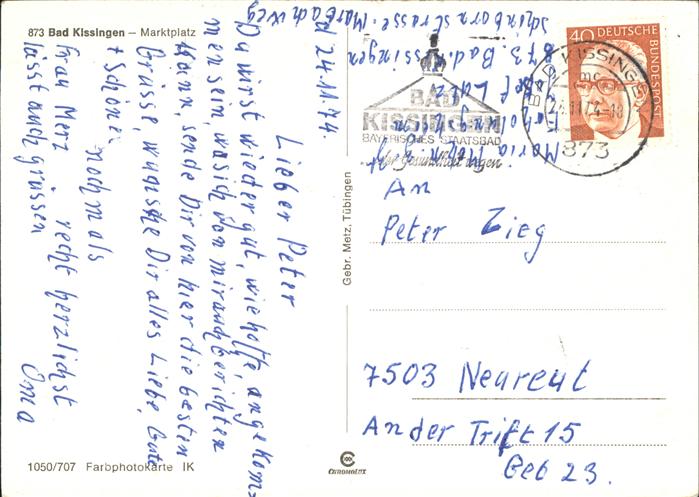 873 Bad Kissingen – Marktplatz
d 24.11.74
Lieber Peter
Du wirst wieder gut, wie hoffe, angekom=
men sein, was ich von mir auch berichten
kann, sende Dir von hier die besten
Grüsse, wünsche Dir alles Liebe, Gute
+ Schöne nochmals
Frau Merz recht herzlichst
lässt auch grüssen Oma
Gebr. Metz, Tübingen
1050/707 Farbphotokarte IK
CHROMOLUX
Maria
873 Bad. Kissingen
Schönbornstrasse.
40 DEUTSCHE BUNDESPOST
BAD KISSINGEN
mc
24.11.74-18
873
BAD
KISSINGEN
BAYERISCHES STAATSBAD
An
Peter Zieg
7503 Neureut
An der Trift 15
Geb 23.